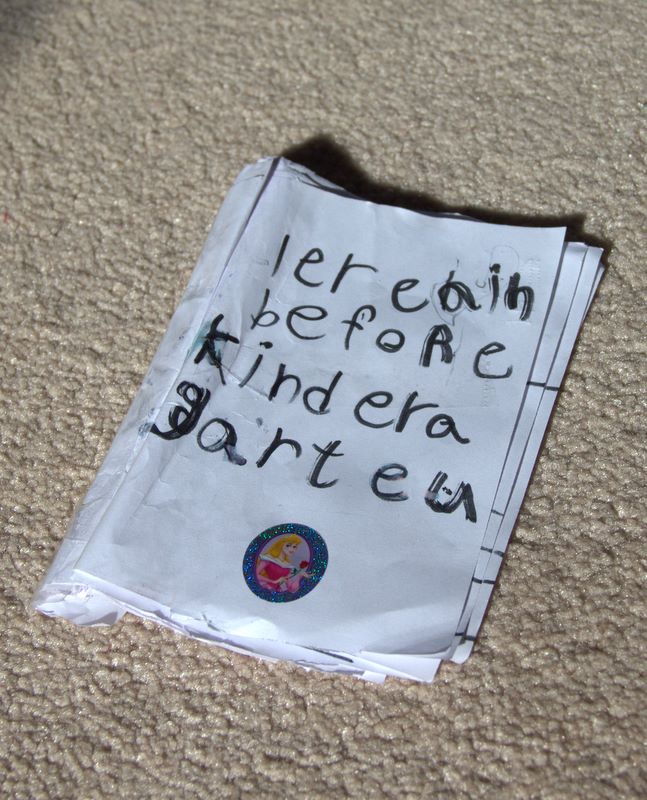 lerenin
before
kindera
garten